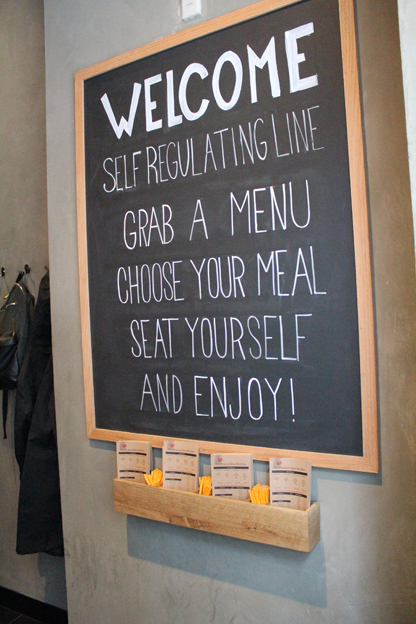 WELCOME
SELF REGULATING LINE
GRAB A MENU
CHOOSE YOUR MEAL
SEAT YOURSELF
AND ENJOY!